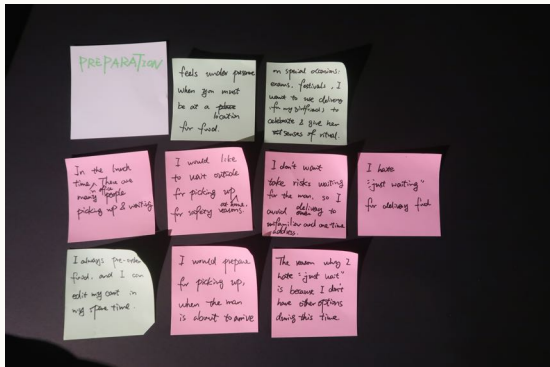 PREPARATION
feels under pressure
when you must
be at a
location
for food.
on special occasions:
exams, festivals, I
want to use delivery
for my girlfriends to
celebrate & give her
senses of ritual.
In the lunch
time, There are
many people
picking up & waiting
in office
I would like
to wait outside
for picking up
at home
for safety reasons.
I don't want
take risks waiting
for the man, so I
avoid delivery to
unfamiliar and one time
address.
I hate
"just waiting"
for delivery food
I always pre-order
food, and I can
edit my cart in
my spare time.
I would prepare
for picking up,
when the man
is about to arrive
The reason why I
hate "just wait"
is because I don't
have other options
during this time